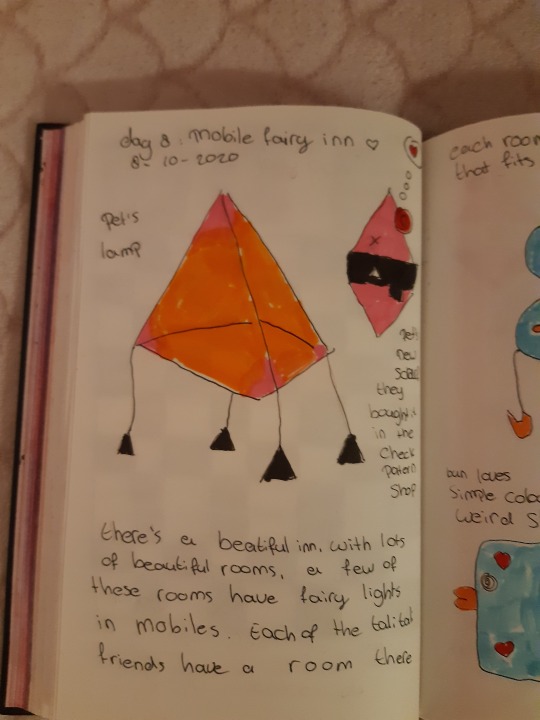 day 8. mobile fairy inn ♡
8-10-2020
Pet's
lamp
Pet's
new
they
bought it
in the
check
patern
shop
there's a beatiful inn. with lots
of beautiful rooms, a few of
these rooms have fairy lights
in mobiles. Each of the talital
friends have a room there
each room
that fits
bun loves
simple colo
weird s